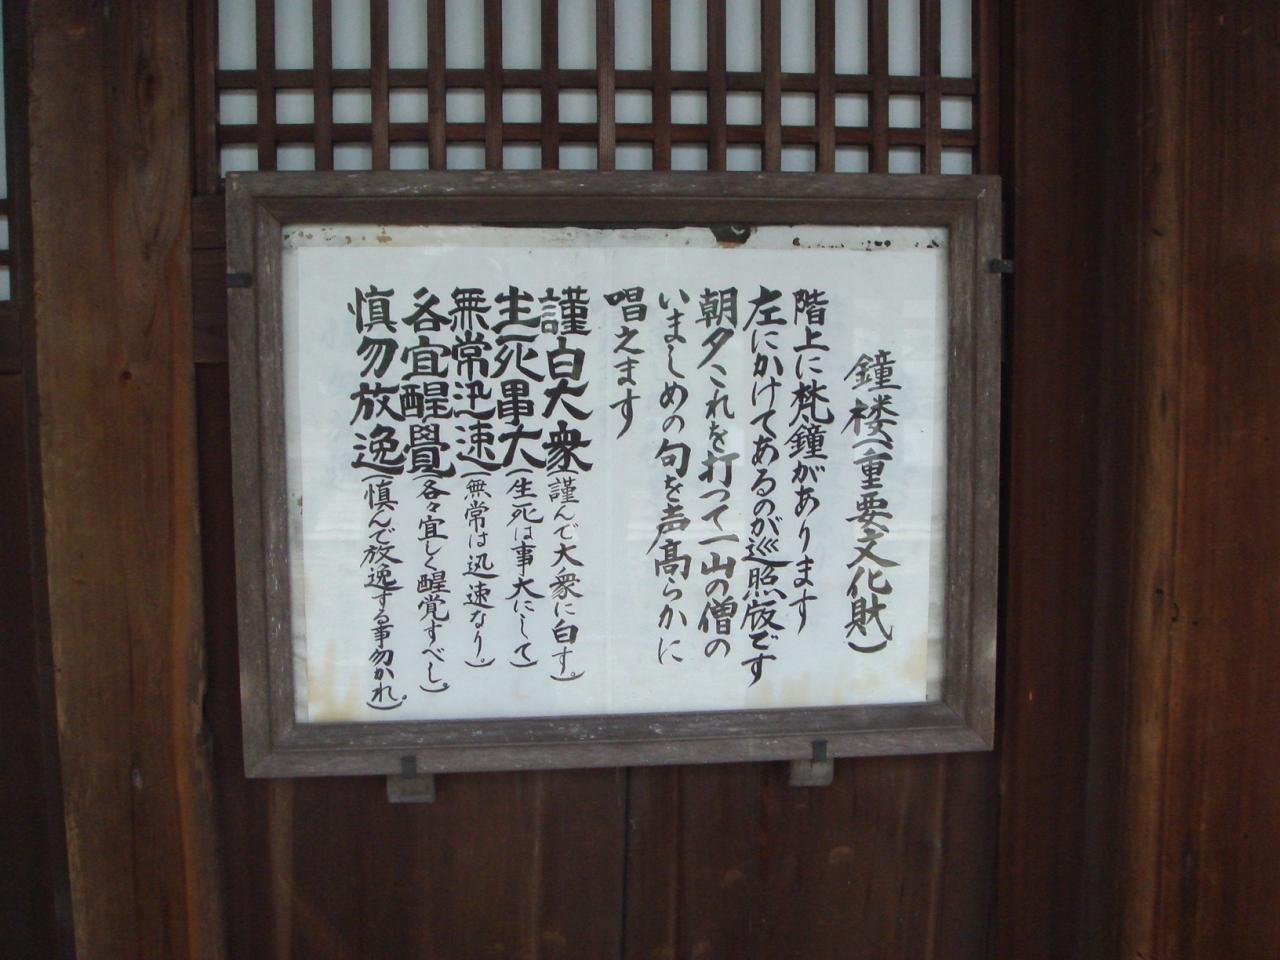 鐘楼(重要文化財)
階上に梵鐘があります
左にかけてあるのが巡照板です
朝夕これを打って一山の僧の
いましめの句を声高らかに
唱えます
謹白大衆(謹んで大衆に白す。)
生死事大(生死は事大にして)
無常迅速(無常は迅速なり。)
各宜醒覺(各々宜しく醒覚すべし。)
慎勿放逸(慎んで放逸する事勿かれ。)